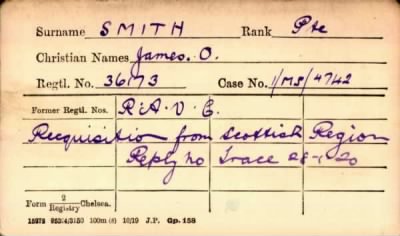 Surname SMITH Rank Pte
Christian Names James. O.
Regtl. No. 36173 Case No. 1/MS/4742
Former Regtl. Nos. R.A.V.C.
Requisition from Scottish Region
Reply no Trace 28-1-20
Form 2/Registry Chelsea.
100m (s) 10/19 J.P. Gp. 158